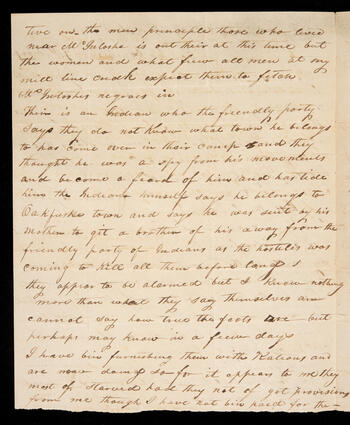 tive on the men principle those who lives
near Mc Intoshe is out their at this time but
the women and what few all men at my
mill line creek expect them to fetch
Mc Intoshes negroes in
Their is an Indian who the friendly party
Says they do not know what town he belongs
to has come over in their camp and they
thought he was a spy from his movements
and become a feard of him and has tide
him the Indian himself says he belongs to
Oakfuske town and says he was sent by his
Mother to git a brother of his away from the
friendly party of Indians as the hostiles was
coming to kill all them before long
they appear to be alarmed but I know nothing
more than what they say themselves am
cannot say how true the facts are but
perhaps may know in a few days
I have bin furnishing them with Rations and
are now doing so for it appears to me they
most of Starved had they not of got provisions
from me though I have not bin paid for the